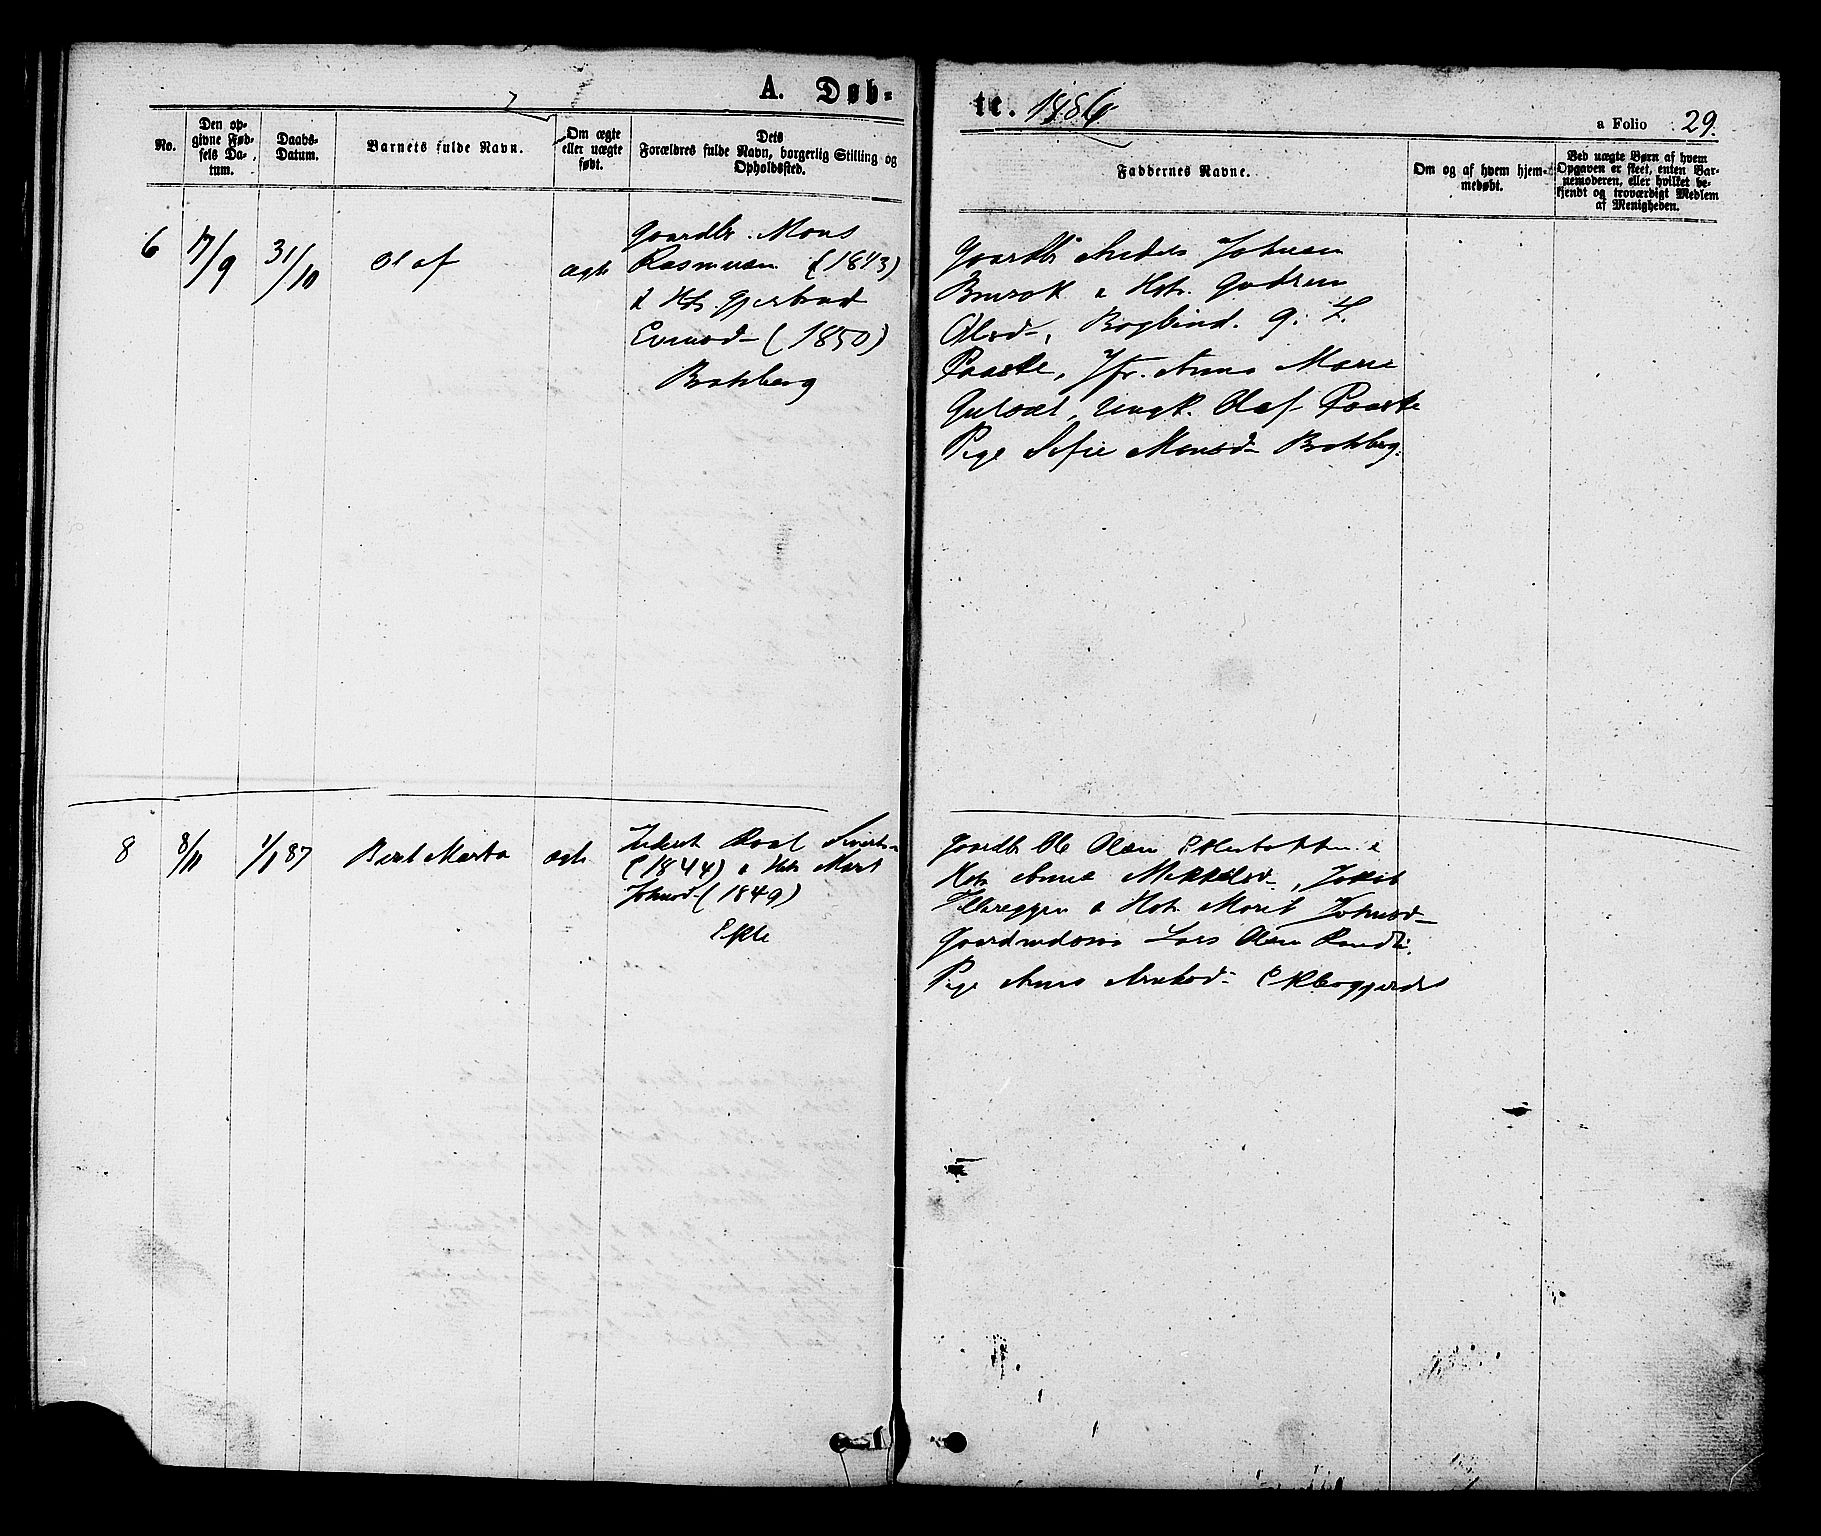 A. Døb-
te. 1886
a Folio 29.
No.
Den op-
givne Fød-
sels Da-
tum.
Daabs-
Datum.
Barnets fulde Navn.
Om ægte
eller uægte
født.
Dets
Forældres fulde Navn, borgerlig Stilling og
Opholdssted.
Faddernes Navne.
Om og af hvem hjem-
medøbt.
Ved uægte Børn af hvem
Opgaven er skeet, enten Bar-
nemoderen, eller hvilket be-
kjendt og troværdigt Medlem
af Menigheden.
6 17/9 31/10 Olaf ægte
Gaardbr. Mons
Rasmusen (1843)
& Hst. Gjertrud
Evensd (1850)
Gaardbr Johnsen
& Hst. Gudrun
Olsd, Bogbind. G. L.
Paaske, Jfr. Anna Marie
Ungk. Olaf Paaske
Pige Sofie Monsd
8 8/11 1/1 87 Berit Marta ægte
Inderst Roal Sivert
(1844) & Hst Marit
Johnsd (1849)
Ekle
Gaardbr Ole Olsen &
Hst. Anne Mikkelsd, Jakob
& Hst. Marit Johnsd
Lars Olsen
Pige Anne